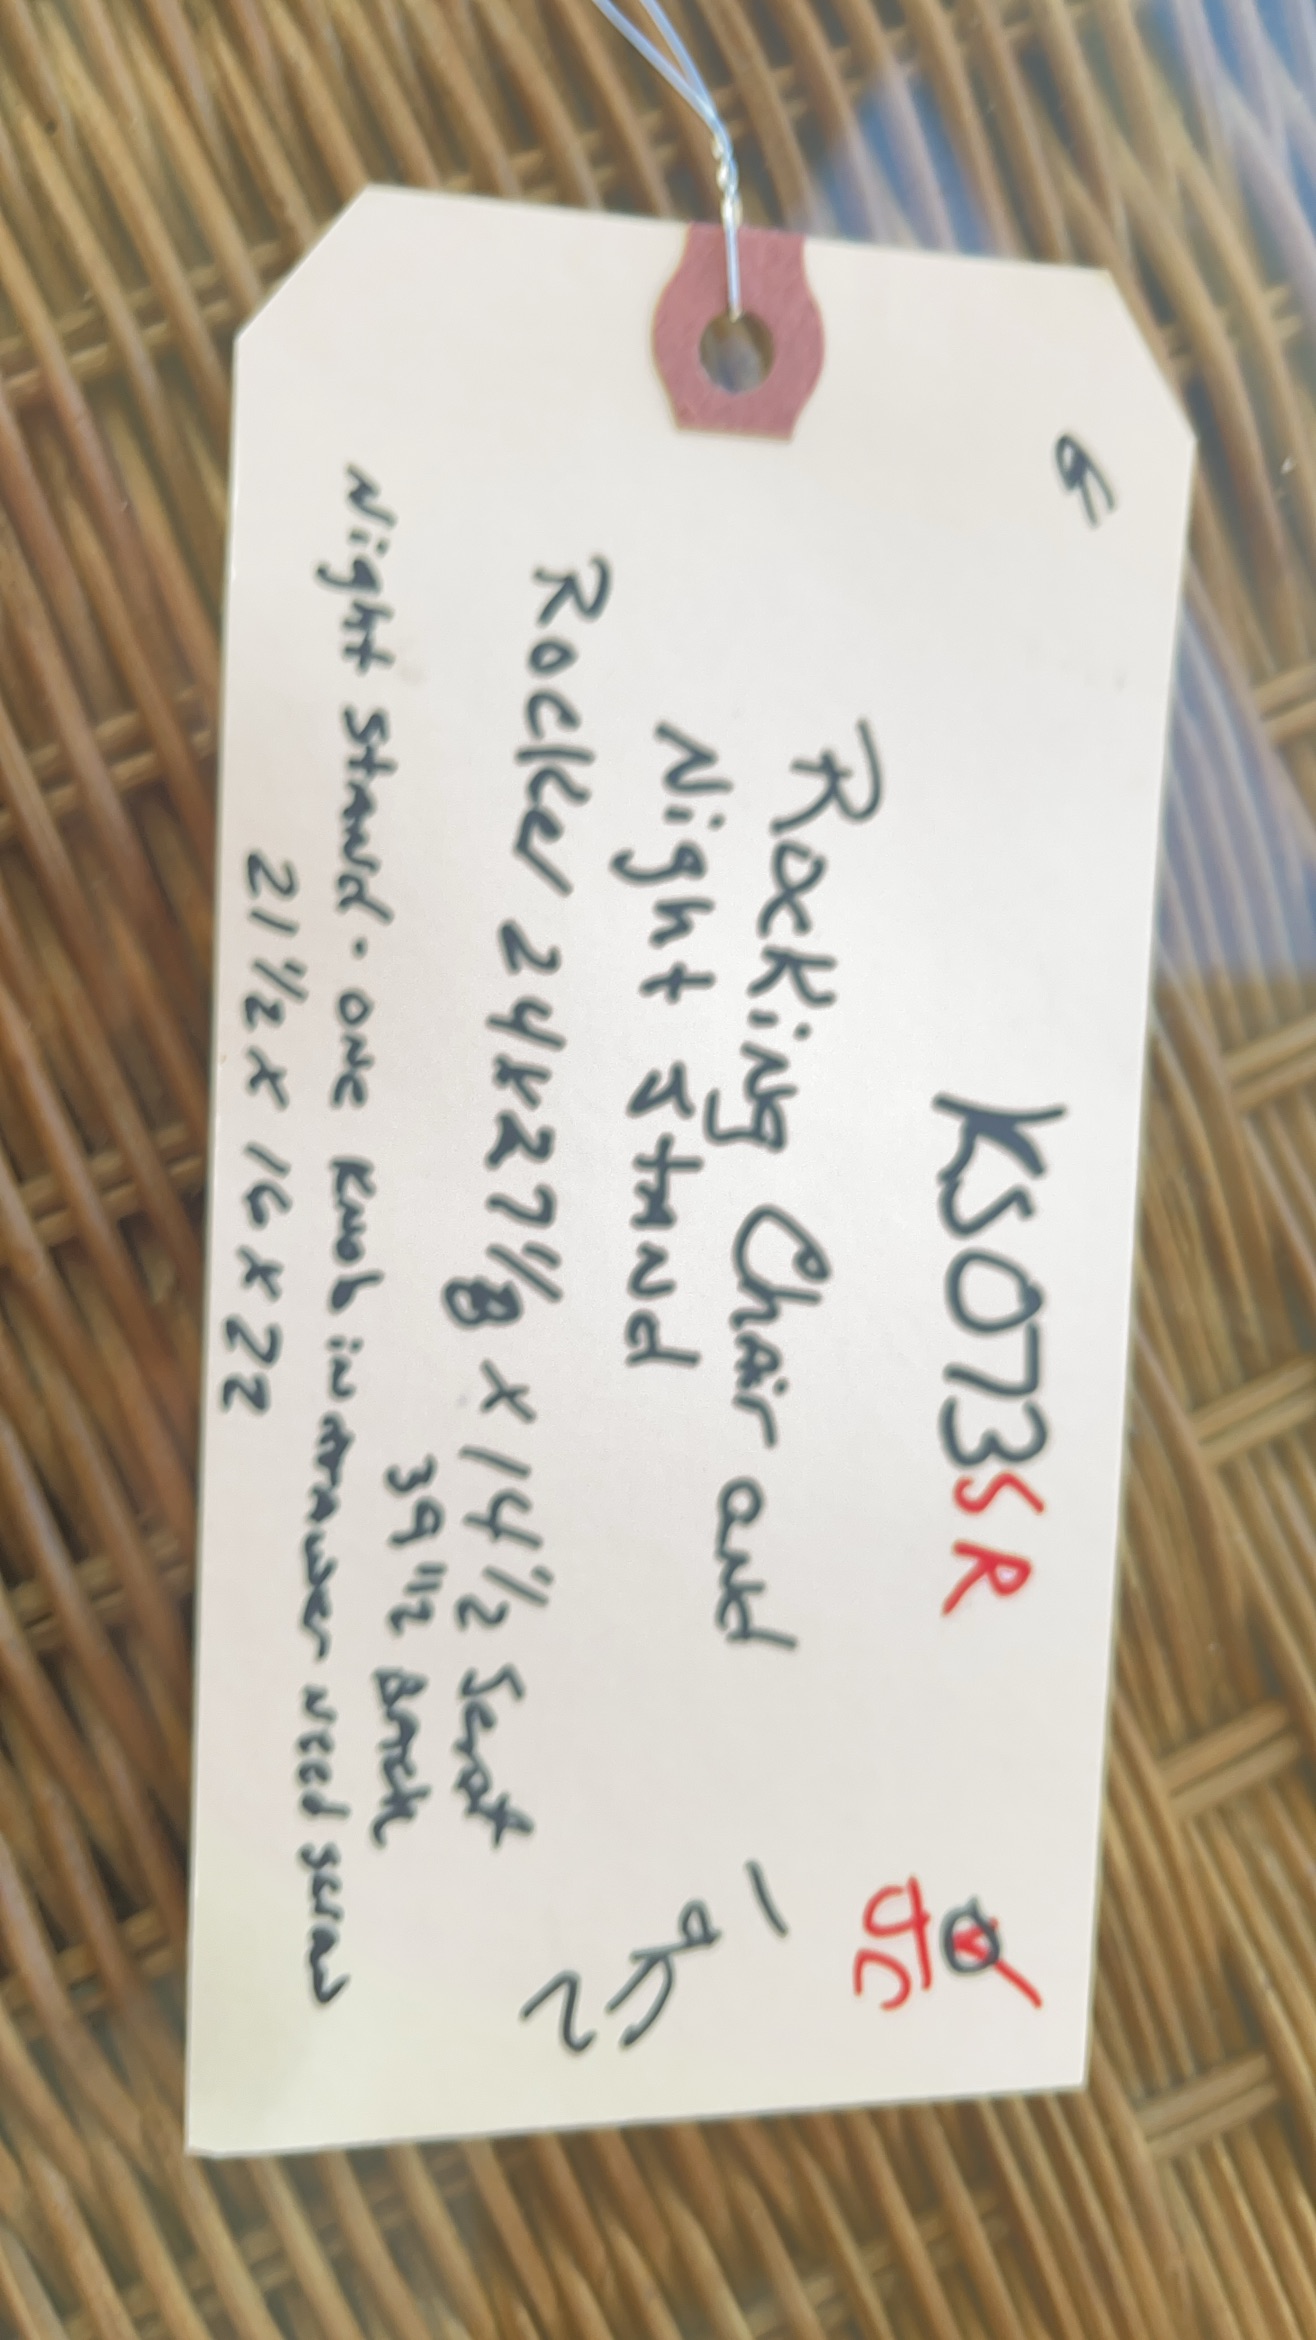 KS073SR
JC
Rocking Chair and
Night Stand
Rocker 24x27 1/8 x 14 1/2 Seat
39 1/2 Back
Night Stand - one Knob in drawer need screw
21 1/2 x 16 x 22